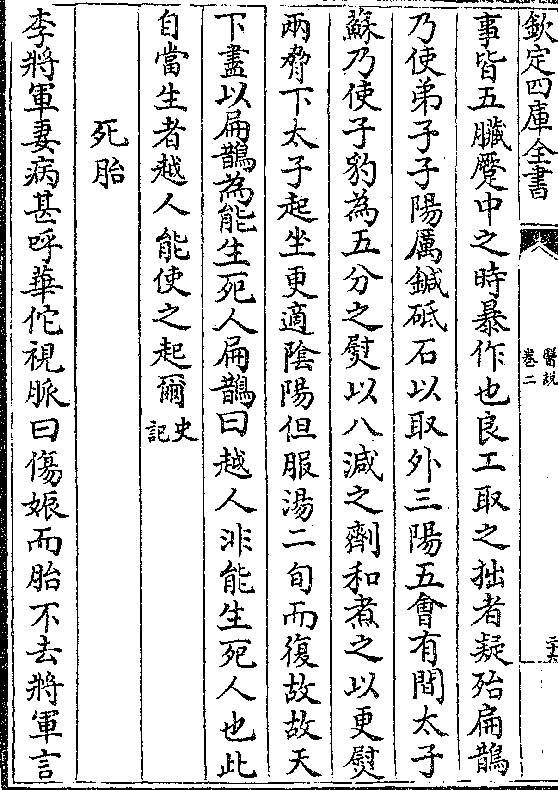 欽定四庫全書
醫說
卷二
二十六
事皆五臟蹷中之時暴作也良工取之拙者疑殆扁鵲
乃使弟子子陽厲鍼砥石以取外三陽五會有間太子
蘇乃使子豹為五分之熨以八減之劑和煮之以更熨
兩脅下太子起坐更適陰陽但服湯二旬而復故故天
下盡以扁鵲為能生死人扁鵲曰越人非能生死人也此
自當生者越人能使之起爾史記
死胎
李將軍妻病甚呼華佗視脈曰傷娠而胎不去將軍言